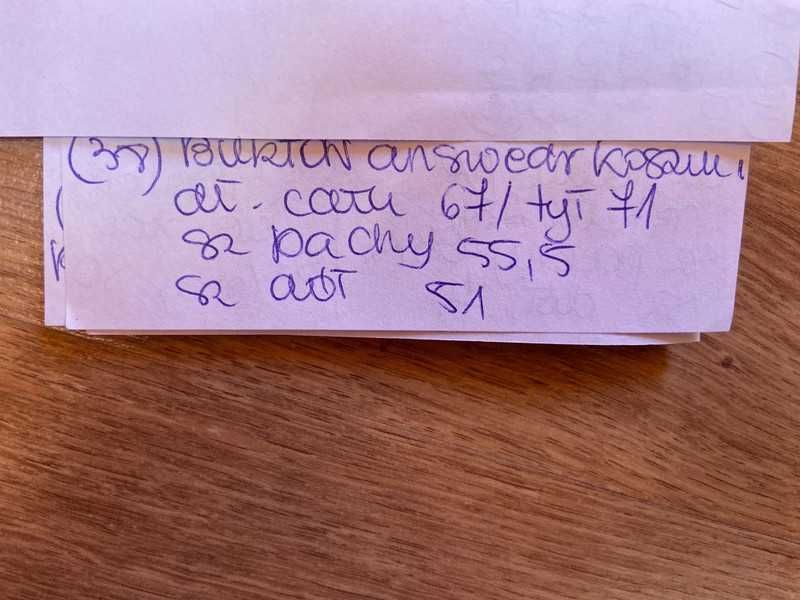 (38) BŁĘKITN answear koszul,
dł. całk 67/ tył 71
sz pachy 55,5
sz dół 51